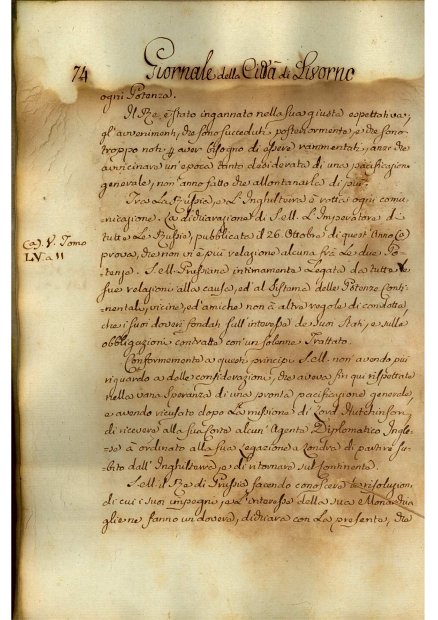 74 Giornale della Città di Livorno
ogni Potenza.
Il Re, è stato ingannato nella sua giusta espettativa,
gl'avvenimenti, che sono succeduti posteriormente, e che sono
troppo noti p aver bisogno di essere rammentati, anzi che
avvicinare un'epoca tanto desiderata di una pacificazione
generale, non anno fatto che allontanarla di più.
Tra La Russia, e L'Inghilterra è rotta ogni comu-
nicazione. La dichiarazione di S. M. L'Imperatore di
tutte Le Russie, pubblicata il 26 Ottobre di quest'Anno (a)
(a) V. Tomo
LV. a 11
prova, che non vi è più relazione alcuna frà Le due Po-
tenze. S. M. Prussiana intimamente Legata da tutte Le
sue relazioni alla causa, ed al sistema delle Potenze Conti-
nentali, vicine, ed amiche non à altre regole di condotta,
che i suoi doveri fondati sull'interesse de suoi Stati, e sulle
obbligazioni contratte con un solenne Trattato.
Conformemente a questi principj S. M. non avendo più
riguardo a delle considerazioni, che aveva fin qui rispettate
nella vana speranza di una pronta pacificazione generale,
e avendo ricusato dopo La missione di Lord Hutchinson
di ricevere alla sua Corte alcun'Agente Diplomatico Ingle-
se à ordinato alla sua Legazione a Londra di partire su-
bito dall'Inghilterra, e di ritornare sul Continente.
S. M. il Re di Prussia facendo conoscere le risoluzioni,
di cui i suoi impegni, e L'interesse della sua Monarchia
gliene fanno un dovere, dichiara con La presente, che